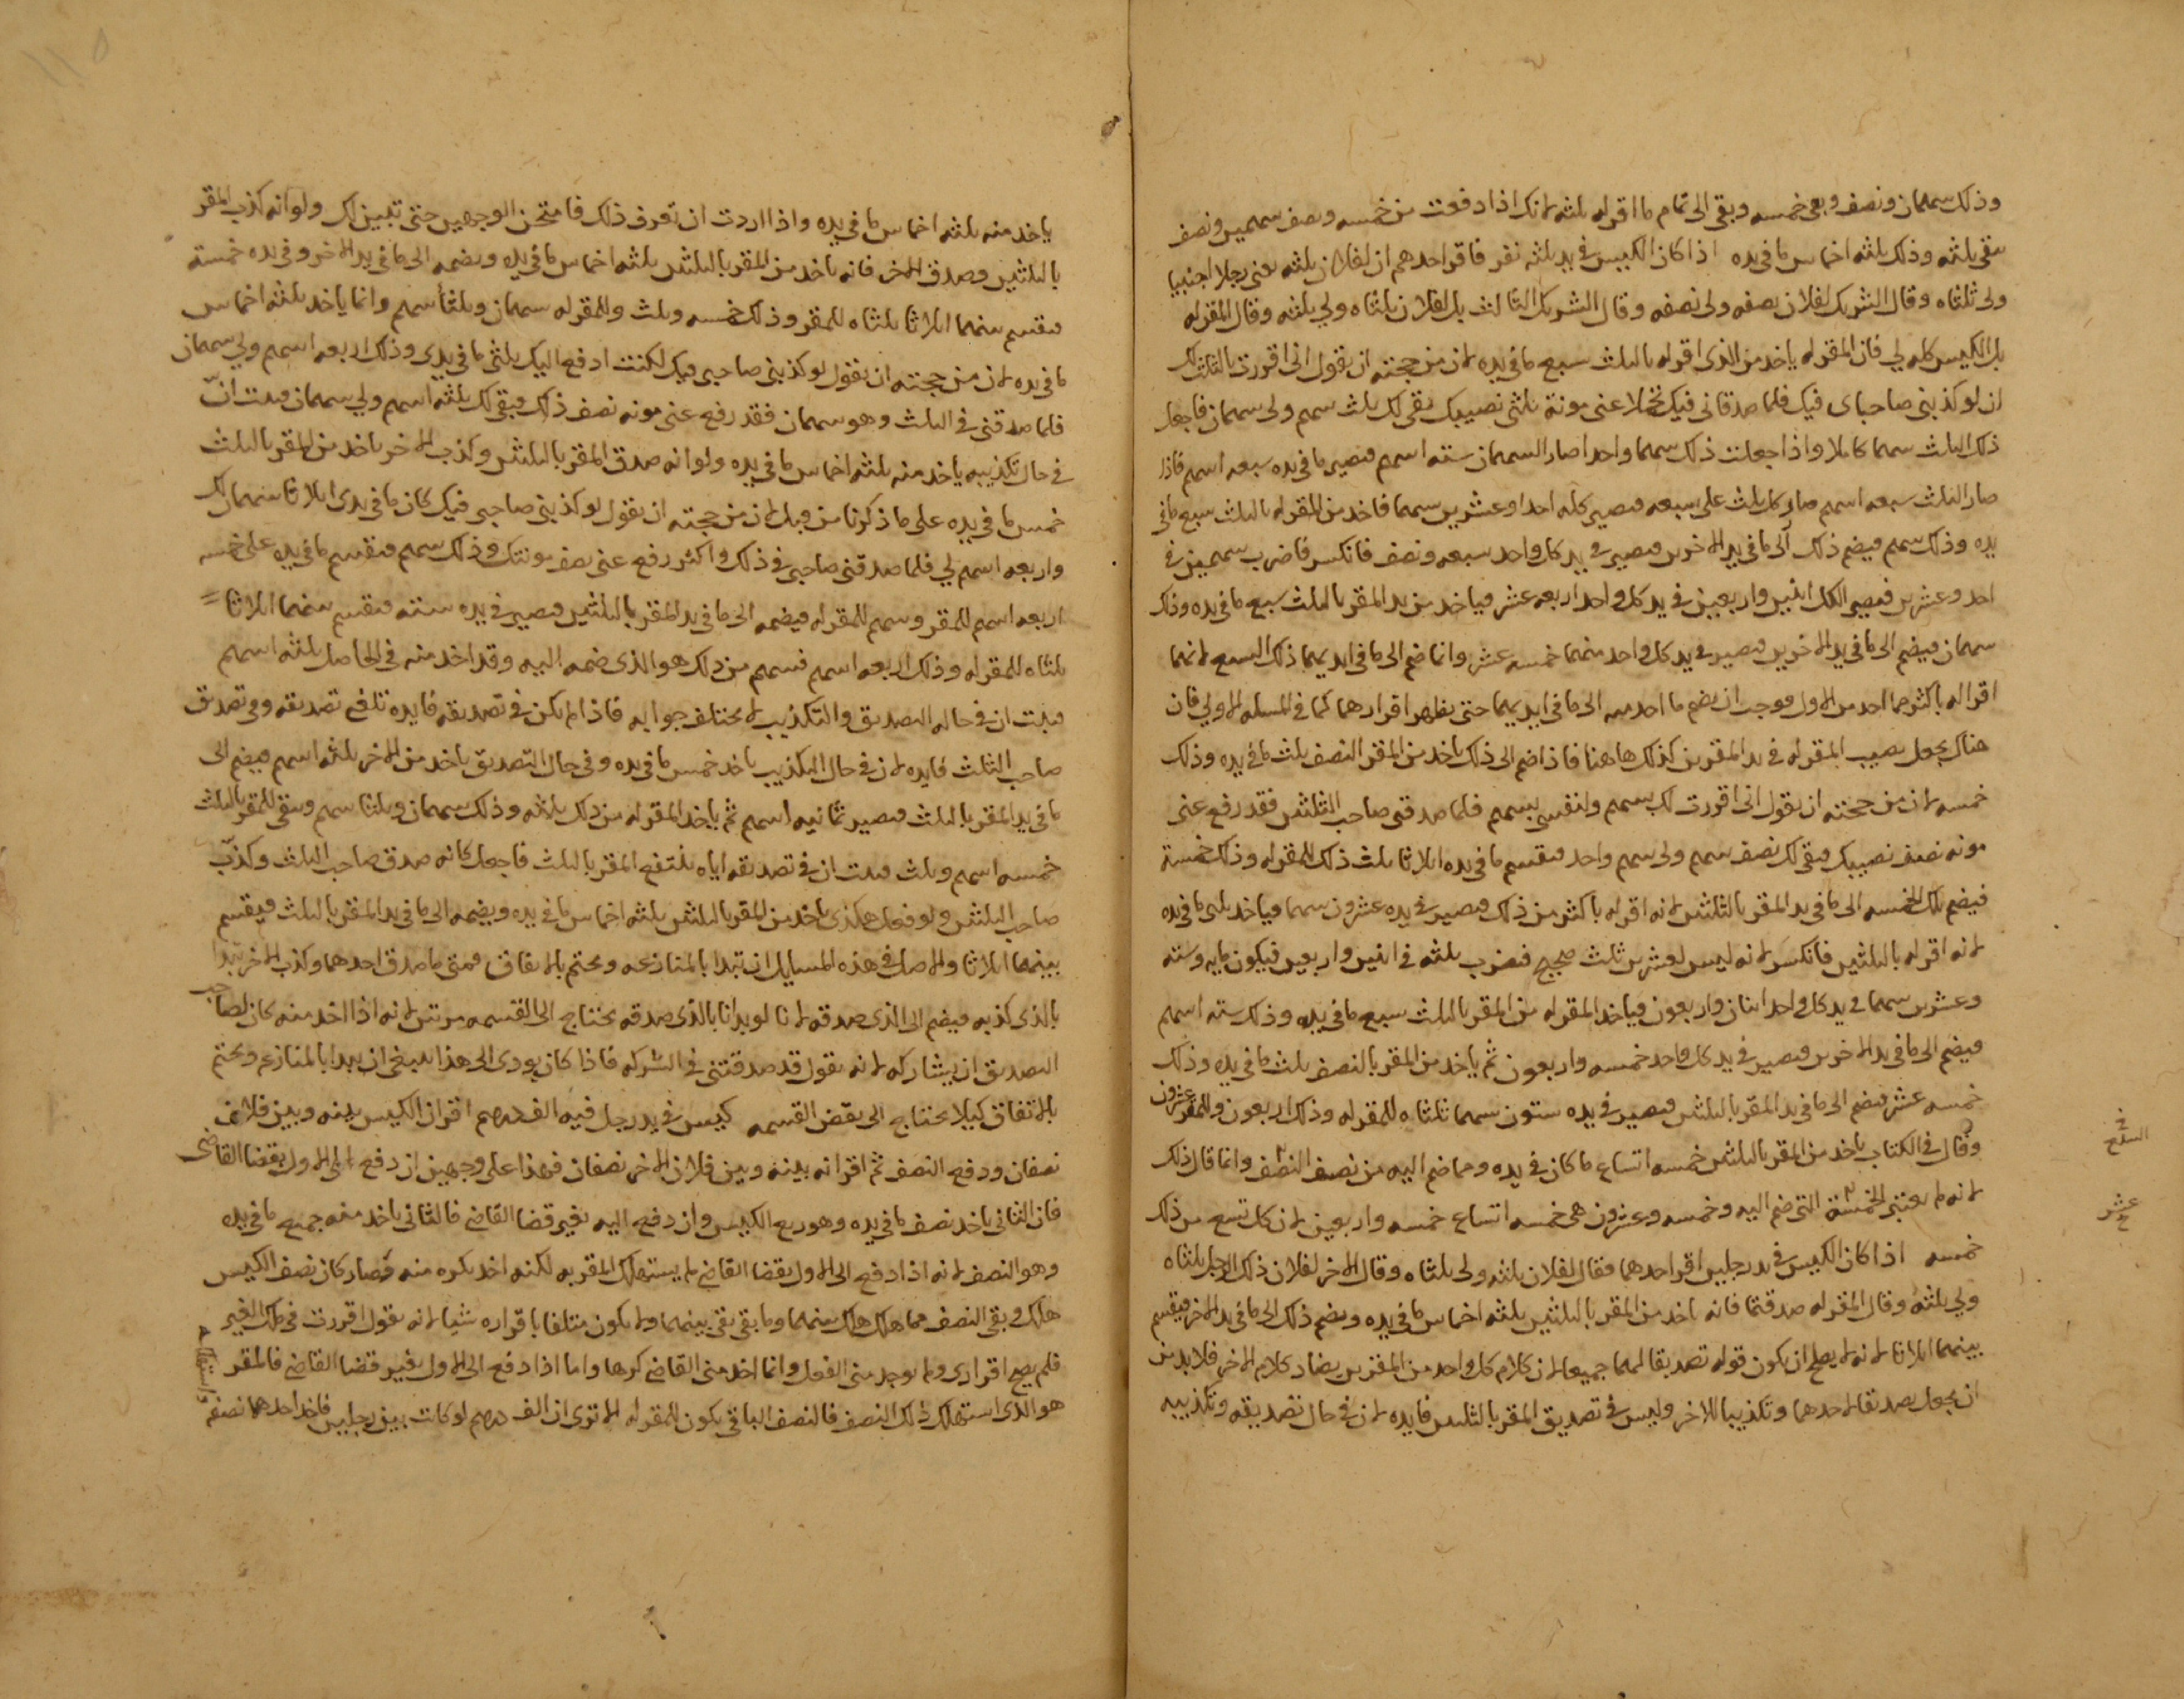 وذلك سهمان ونصف وبقى خمسه وبقى الى تمام ما اقر له ثلثه لانك اذا دفعت من خمسه ونصف سهمين ونصف
بقى ثلثه وذلك ثلثه اخماس ما فى يده اذا كان الكيس فى يد ثلثه نفر فاقر احدهم ان لفلان ثلثه يعنى رجلا اجنبيا
ولى ثلثاه وقال الشريك لفلان نصفه ولى نصفه وقال الشريك الثالث بل لفلان ثلثاه ولي ثلثه وقال المقر له
بل الكيس كله لي فان المقر له ياخذ من الذى اقر له بالثلث سبع ما فى يده لان من حجته ان يقول انى اقررت بالثلث لك
ان لو كذبنى صاحباى فيك فلما صدقانى فيك تحملا عنى مونة ثلثى نصيبك بقى لك ثلث سهم ولى سهمان فاجعل
ذلك الثلث سهما كاملا واذا جعلت ذلك سهما واحدا صار السهمان سته اسهم فيصير ما فى يده سبعه اسهم فاذا
صار الثلث سبعه اسهم صار كل ثلث على سبعه فيصير كله احدا وعشرين سهما فاخذ من المقر له بالثلث سبع ما فى
يده وذلك سهم فيضم ذلك الى ما فى يد الاخرين فيصير فى يد كل واحد سبعه ونصف فانكسر فاضرب سهمين فى
احد وعشرين فيصير الكل اثنين واربعين فى يد كل واحد اربعه عشر فياخذ من يد المقر بالثلث سبع ما فى يده وذلك
سهمان فيضم الى ما فى يد الاخرين فيصير فى يد كل واحد منهما خمسه عشر وانما ضم الى ما فى ايديهما ذلك السبع لانهما
اقرا له باكثر مما اخذ من الاول فوجب ان يضم ما اخذ منه الى ما فى ايديهما حتى يظهر اقرارهما كما فى المسئله الاولي فان
هناك يجعل نصيب المقر له فى يد المقرين كذلك هاهنا فاذا ضم الى ذلك ياخذ من المقر النصف ثلث ما فى يده وذلك
خمسه لان من حجته ان يقول انى اقررت لك بسهم ولنفسى بسهم فلما صدقنى صاحب الثلثين فقد رفع عنى
مونه نصف نصيبك فبقى لك نصف سهم ولى سهم واحد فيقسم ما فى يده اثلاثا ثلث ذلك للمقر له وذلك خمسة
فيضم تلك الخمسه الى ما فى يد المقر بالثلثين لانه اقر له باكثر من ذلك فيصير فى يده عشرون سهما فياخذ ثلثى ما فى يده
لانه اقر له بالثلثين فانكسر لانه ليس لعشرين ثلث صحيح فيضرب ثلثه فى اثنين واربعين فيكون مايه وسته
وعشرين سهما فى يد كل واحد اثنان واربعون فياخذ المقر له من المقر بالثلث سبع ما فى يده وذلك سته اسهم
فيضم الى ما فى يد الاخرين فيصير فى يد كل واحد خمسه واربعون ثم ياخذ من المقر بالنصف ثلث ما فى يده وذلك
خمسه عشر فيضم الى ما فى يد المقر بالثلثين فيصير فى يده ستون سهما ثلثاه للمقر له وذلك اربعون وللمقر عشرون
وقال فى الكتاب ياخذ من المقر بالثلثين خمسه اتساع ما كان فى يده ومما ضم اليه من نصف النصف وانما قال ذلك
لانه لم يعتبر الخمسة التى ضم اليه وخمسه وعشرون هى خمسه اتساع خمسه واربعين لان كل تسع من ذلك
خمسه اذا كان الكيس فى يد رجلين اقر احدهما فقال لفلان ثلثه ولى ثلثاه وقال الاخر لفلان ذلك الرجل ثلثاه
ولي ثلثه وقال المقر له صدقتما فانه ياخذ من المقر بالثلثين ثلثه اخماس ما فى يده ويضم ذلك الى ما فى يد الاخر فيقسم
بينهما اثلاثا لانه لا يصلح ان يكون قوله تصديقا لهما جميعا لان كلام كل واحد من المقرين يضاد كلام الاخر فلا بد من
ان يجعل تصديقا لاحدهما وتكذيبا للاخر وليس فى تصديق المقر بالثلثين فايده لان فى حال تصديقه وتكذيبه
فى
السبع
عشر
ياخذ منه ثلثه اخماس ما فى يده واذا اردت ان تعرف ذلك فامتحن الوجهين حتى تبين لك ولو انه كذب المقر
بالثلثين وصدق الاخر فانه ياخذ من المقر بالثلثين ثلثه اخماس ما فى يده ويضمه الى ما فى يد الاخر وفى يده خمسة
فيقسم بينهما اثلاثا ثلثاه للمقر وذلك خمسه وثلث وللمقر له سهمان وثلثا سهم وانما ياخذ ثلثه اخماس
ما فى يده لان من حجته ان يقول لو كذبنى صاحبى فيك لكنت ادفع اليك ثلثى ما فى يدى وذلك اربعه اسهم ولي سهمان
فلما صدقنى فى الثلث وهو سهمان فقد رفع عنى مونه نصف ذلك فبقى لك ثلثه اسهم ولي سهمان فثبت انّ
فى حال تكذيبه ياخذ منه ثلثه اخماس ما فى يده ولو انه صدق المقر بالثلثين وكذب الاخر ياخذ من المقر بالثلث
خمس ما فى يده على ما ذكرنا من قبل لان من حجته ان يقول لو كذبنى صاحبى فيك كان ما فى يدى اثلاثا سهمان لك
واربعه اسهم لي فلما صدقنى صاحبى فى ذلك واكثر رفع عنى نصف مونتك وذلك سهم فيقسم ما فى يده على خمسه
اربعه اسهم للمقر وسهم للمقر له فيضمه الى ما فى يد المقر بالثلثين فيصير فى يده سته فيقسم بينهما اثلاثا
ثلثاه للمقر له وذلك اربعه اسهم فسهم من ذلك هو الذى ضمه اليه وقد اخذ منه فى الحاصل ثلثه اسهم
فثبت ان فى حاله التصديق والتكذيب لا يختلف جوابه فاذا لم يكن فى تصديقه فايده تلغى تصديقه وفى تصديق
صاحب الثلث فايده لان فى حال التكذيب ياخذ خمس ما فى يده وفى حال التصديق ياخذ من الاخر ثلثه اسهم فيضم الى
ما فى يد المقر بالثلث فيصير ثمانيه اسهم ثم ياخذ المقر له من ذلك ثلثه وذلك سهمان وثلثا سهم وبقى للمقر بالثلث
خمسه اسهم وثلث فثبت ان فى تصديقه اياه ينتفع المقر بالثلث فاجعل كانه صدق صاحب الثلث وكذّب
صاحب الثلثين ولو فعل هكذى ياخذ من المقر بالثلثين ثلثه اخماس ما فى يده ويضمه الى ما فى يد المقر بالثلث فيقسم
بينهما اثلاثا والاصل فى هذه المسايل ان تبدا بالمنازعه وتختم بالاتفاق فمتى ما صدق احدهما وكذب الاخر تبدا
بالذى كذبه فيضم الى الذى صدقه لانا لو بدانا بالذى صدقه يحتاج الى القسمه مرتين لانه اذا اخذ منه كان لصاحب
التصديق ان يشاركه لانه يقول قد صدقتنى فى الشركه فاذا كان يودى الى هذا ينبغى ان يبدا بالمنازعه ويختم
بالاتفاق كيلا يحتاج الى نقض القسمه كيس فى يد رجل فيه الف درهم اقر ان الكيس بينه وبين فلان
نصفان ودفع النصف ثم اقر انه بينه وبين فلان الاخر نصفان فهذا على وجهين ان دفع الى الاول بقضا القاضى
فان الثانى ياخذ نصف ما فى يده وهو ربع الكيس وان دفع اليه بغير قضا القاضى فالثانى ياخذ منه جميع ما فى يده
وهو النصف لانه اذا دفع الى الاول بقضا القاضى لم يستهلك المقر به لكنه اخذ بكره منه فصار كان نصف الكيس
هلك وبقى النصف فما هلك هلك منهما وما بقى بقى بينهما ولا يكون متلفا باقراره شيا لانه يقول اقررت فى ملك الغير
فلم يصح اقرارى ولم يوجد منى الفعل وانما اخذ منى القاضى كرها واما اذا دفع الى الاول بغير قضا القاضى فالمقر
هو الذى استهلك ذلك النصف فالنصف الباقى يكون للمقر له الا ترى ان الف درهم لو كانت بين رجلين فاخذ احدهما نصفه